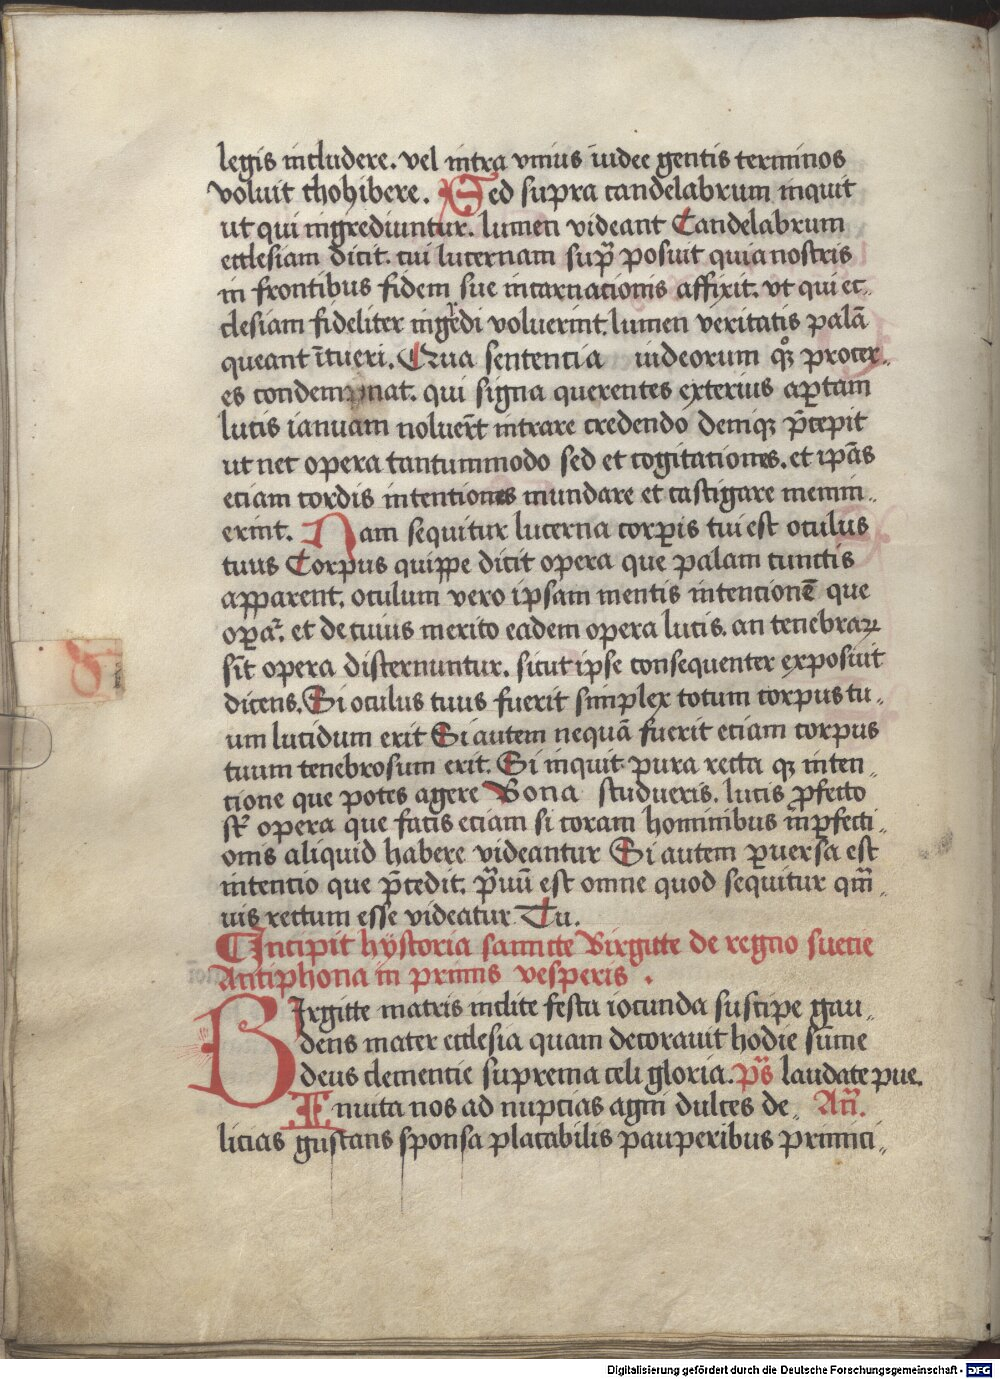 legis includere. vel intra vnius iudee gentis terminos
voluit chohibere. Sed supra candelabrum inquit
ut qui ingrediuntur. lumen videant Candelabrum
ecclesiam dicit. cui lucernam sup̃ posuit quia nostris
in frontibus fidem sue incarnacionis affixit. vt qui ec„
clesiam fideliter ingredi voluerint. lumen veritatis palā
queant ītueri. Qua sentencia iudeorum qͦꝫ procer„
es condempnat. qui signa querentes exterius aꝑtam
lucis ianuam noluer̄t intrare credendo deniqꝫ p̄cepit
ut nec opera tantummodo sed et cogitationes. et ip̄as
eciam cordis intentiones mundare et castigare memin„
erint. Nam sequitur lucerna corꝑis tui est oculus
tuus Corpus quippe dicit opera que palam cunctis
apparent. oculum vero ipsam mentis intencionē que
oꝑaꝛ̃. et de cuius merito eadem opera lucis. an tenebraꝝ
sīt opera discernuntur. sicut ipse consequenter exposuit
dicens. Si oculus tuus fuerit simplex totum corpus tu„
um lucidum erit Si autem nequā fuerit eciam corpus
tuum tenebrosum erit. Si inquit pura recta qꝫ inten„
cione que potes agere Bona studueris. lucis ꝓfecto
st̃ opera que facis eciam si coram hominibus īnꝑfecti„
onis aliquid habere videantur Si autem ꝑuersa est
intencio que p̄cedit. p̄uū est omne quod sequitur qm̄„
uis rectum esse videatur Tu.
Incipit hÿstoria sanncte Birgitte de regno suecie
Antiphona in primis vesperis .
BIrgitte matris inclite festa iocunda suscipe gau„
dens mater ecclesia quam decorauit hodie sūme
deus clemencie suprema celi gloria. ps̄ laudate pue.
Inuita nos ad nupcias agni dulces de„ An̄.
licias gustans sponsa placabilis pauperibus primici„
Digitalisierung gefördert durch die Deutsche Forschungsgemeinschaft - DFG